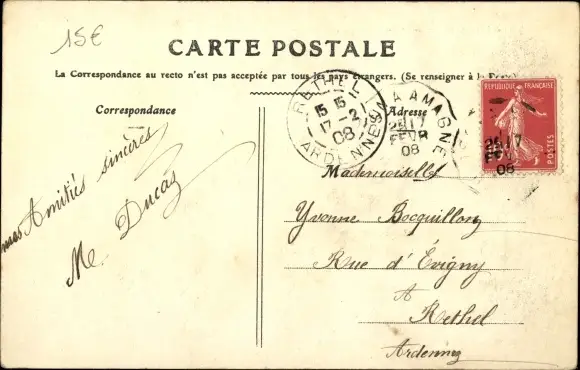 15€
CARTE POSTALE
La Correspondance au recto n'est pas acceptée par tous les pays étrangers. (Se renseigner à la
Correspondance
Adresse
RETHEL
15 15
17-2
08
ARDENNES
AMAGNE
17
FEVR
08
REPUBLIQUE FRANÇAISE
POSTES
17
08
Amitiés sincères
Me Ducas
Mademoiselle
Yvonne Bocquillon
Rue d'Évigny
A
Rethel
Ardennes